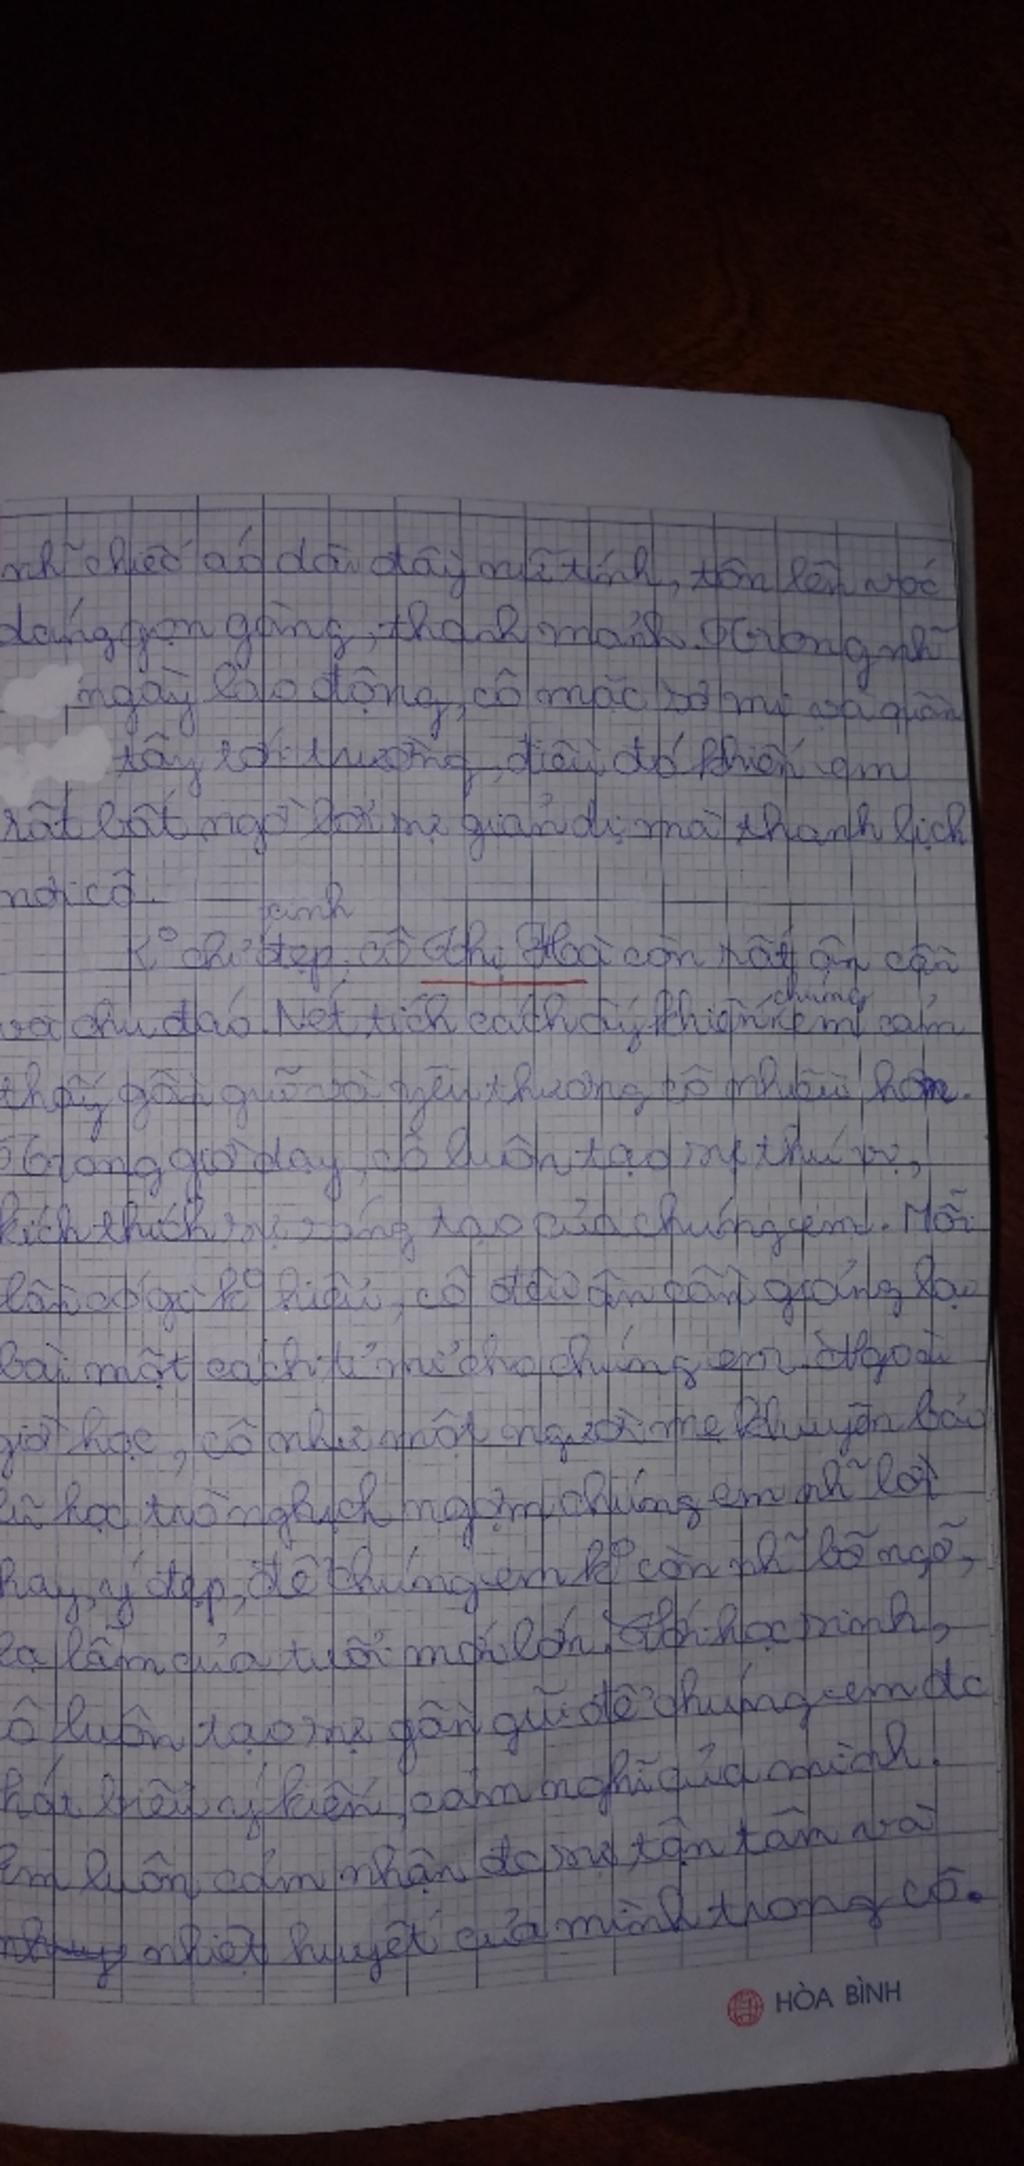 nh~ chiếc áo dài đầy nữ tính, tôn lên vóc
dáng gọn gàng, thanh mảnh. Trong nh~
ngày lao động, cô mặc sơ mi và quần
tây tới trường, điều đó khiến em
rất bất ngờ bởi sự giản dị mà thanh lịch
nơi cô.
xinh
K° chỉ đẹp, cô Thị Hoà còn rất ân cần
chúng
và chu đáo. Nét tích cách ấy khiến em cảm
thấy gần gũi và yêu thương cô nhiều hơn.
Trong giờ dạy, cô luôn tạo sự thú vị,
kích thích sự sáng tạo của chúng em. Mỗi
lần có gì k° hiểu, cô đều ân cần giảng lại
bài một cách tỉ mỉ cho chúng em. Ngoài
giờ học, cô như một người mẹ khuyên bảo
lũ học trò nghịch ngợm chúng em nh~ lời
hay, ý đẹp, để chúng em k° còn nh~ bỡ ngỡ,
lạ lẫm của tuổi mới lớn. Với học sinh,
ô luôn tạo sự gần gũi để chúng em đc
hát biểu ý kiến, cảm nghĩ của mình.
Em luôn cảm nhận đc sự tận tâm và
nhiệt huyết của mình trong cô.
HÒA BÌNH